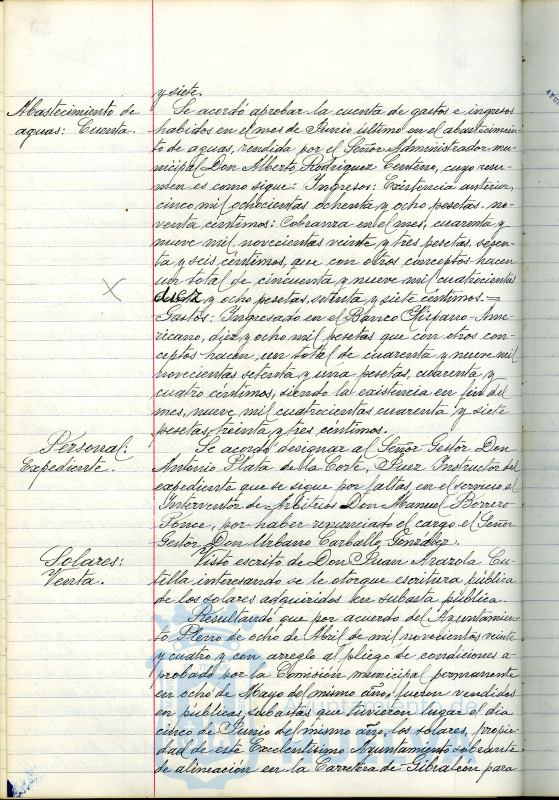 y siete.
Abastecimiento de
aguas: Cuenta.
Se acordó aprobar la cuenta de gastos e ingresos
habidos en el mes de Junio último en el abastecimien-
to de aguas, rendida por el Señor Administrador mu-
nicipal Don Alberto Rodríguez Centeno, cuyo resu-
men es como sigue: Ingresos: Existencia anterior,
cinco mil ochocientas ochenta y ocho pesetas no-
venta céntimos: Cobranza en el mes, cuarenta y
nueve mil novecientas veinte y tres pesetas, sesen-
ta y seis céntimos, que con otros conceptos hacen
un total de cincuenta y nueve mil cuatrocientas
diez y ocho pesetas, setenta y siete céntimos. =
Gastos: Ingresado en el Banco Hispano-Ame-
ricano, diez y ocho mil pesetas que con otros con-
ceptos hacen un total de cuarenta y nueve mil
novecientas setenta y una pesetas, cuarenta y
cuatro céntimos, siendo la existencia en fin del
mes, nueve mil cuatrocientas cuarenta y siete
pesetas, treinta y tres céntimos.
Personal:
Expediente.
Se acordó designar al Señor Gestor Don
Antonio Plata de la Corte, Juez Instructor del
expediente que se sigue por faltas en el servicio al
Interventor de Arbitrios Don Manuel Borrero
Ponce, por haber renunciado el cargo el Señor
Gestor Don Urbano Carballo González.
Solares:
Venta.
Visto escrito de Don Juan Mazola Cu-
tilla interesando se le otorgue escritura pública
de los solares adquiridos en subasta pública.
Resultando que por acuerdo del Ayuntamien-
to Pleno de ocho de Abril de mil novecientos veinte
y cuatro y con arreglo al pliego de condiciones a-
probado por la Comisión municipal permanente
en ocho de Mayo del mismo año, fueron vendidos
en públicas subastas que tuvieron lugar el dia
cinco de Junio del mismo año, los solares, propie-
dad de este Excelentísimo Ayuntamiento sobrante
de alineación en la Carretera de Gibraleon para
Ayuntamiento de
HUELVA